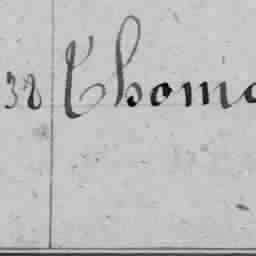 38 Thoma